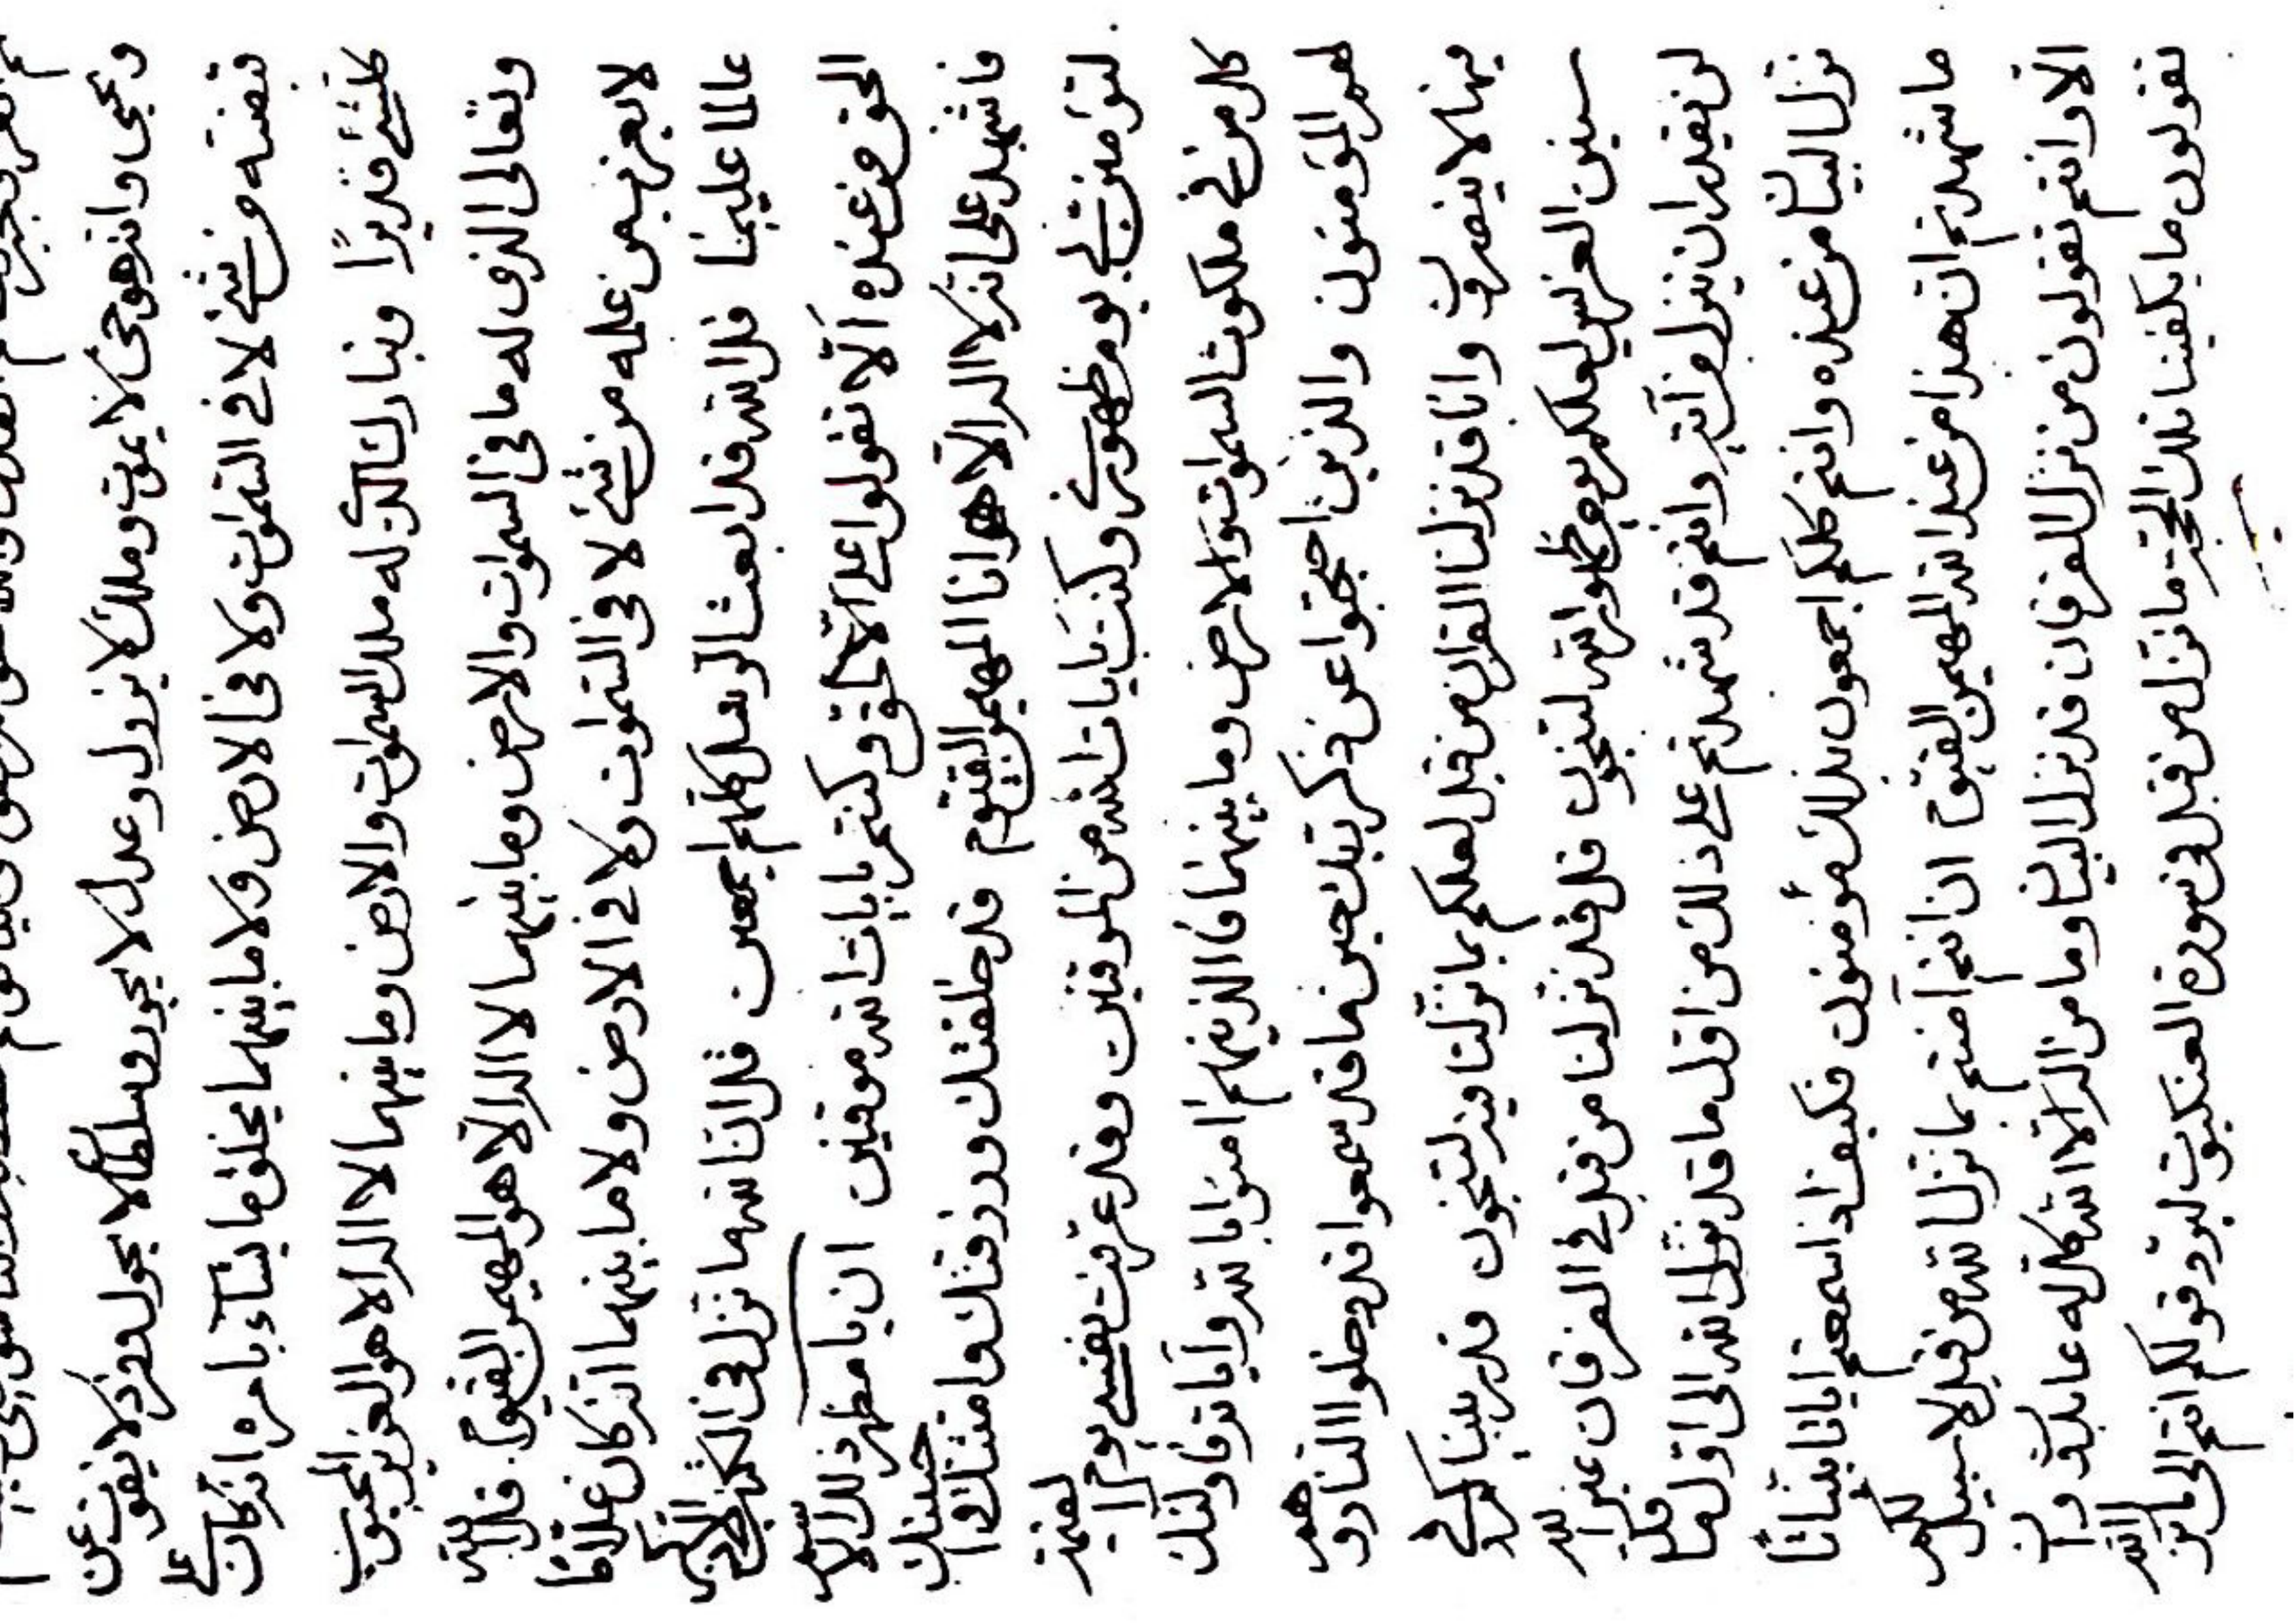 ويحيى وانه هو حى لا يموت وملك لا يزول وعدل لا يجور وسلطان لا يحول وفرد لا يفوت عن
قبضته من شئ لا فى السموات ولا فى الارض ولا ما بينهما يخلق ما يشآء بامره انه كان على
كلشئ قديرًا وتبارك الذى له ملك السموات والارض وما بينهما لا اله الا هو العزيز المحبوب
وتعالى الذى له ما فى السموات والارض وما بينهما لا اله الا هو المهيمن القيوم قل الله
لا يعزب من علمه من شئ لا فى السموات ولا فى الارض ولا ما بينهما انه كان علاما
عالما عليما قل الله قد ابعث الرسل كلهم اجمعين قل ان الله ما نزل فى الكتب
الحق من عنده الّا تقولوا على الله الا الحق وكنتم بايات الله موقنين ان يا مظهر ذلك الاسم
فاشهد على انه لا اله الا هو انا المهيمن القيوم قد خلقتك ورزقتك وامتك واحييتك
لتؤمنن بى يوم ظهورى وكنت بايات الله من الموقنين وقد عرفت نفسى يوم القيمة
كل من فى ملكوت السموات والارض وما بينهما فالذينهم امنوا بالله واياته فاولئك
لهم المؤمنون والذين احتجبوا عن ذكر ربك حين ما قد سمعوا قد دخلوا النار وهم
فيها لا ينصرون وانا قد نزلنا القران من قبل لعلكم بما نزلنا فيه لتنجون قد ربيناكم فى
سنين العرس لعلكم يوم ظهور الله لتنجون قل قد نزلنا من قبل فى الفرقان غير الله
لن يقدر ان ينزل من آية وانتم قد شهدتم على ذلك من اول ما قد نزل الله الى اول ما قد
نزل البيان من عنده وانتم كلكم اجمعون بذلك مؤمنون فكيف اذا سمعتم
ما شهدتم ان هذا من عند الله المهيمن القيوم ان انتم آمنتم بما نزل الله من قبل لا سبيل لكم
الا وانتم تقولون من نزل الفرقان قد نزل البيان وما من اله الا الله كل له عابدون وان
تقولون ما يكفينا تلك الحجة ما نزل من قبل فى سورة العنكبوت ليرد قولكم انتم الى ما نزل الله